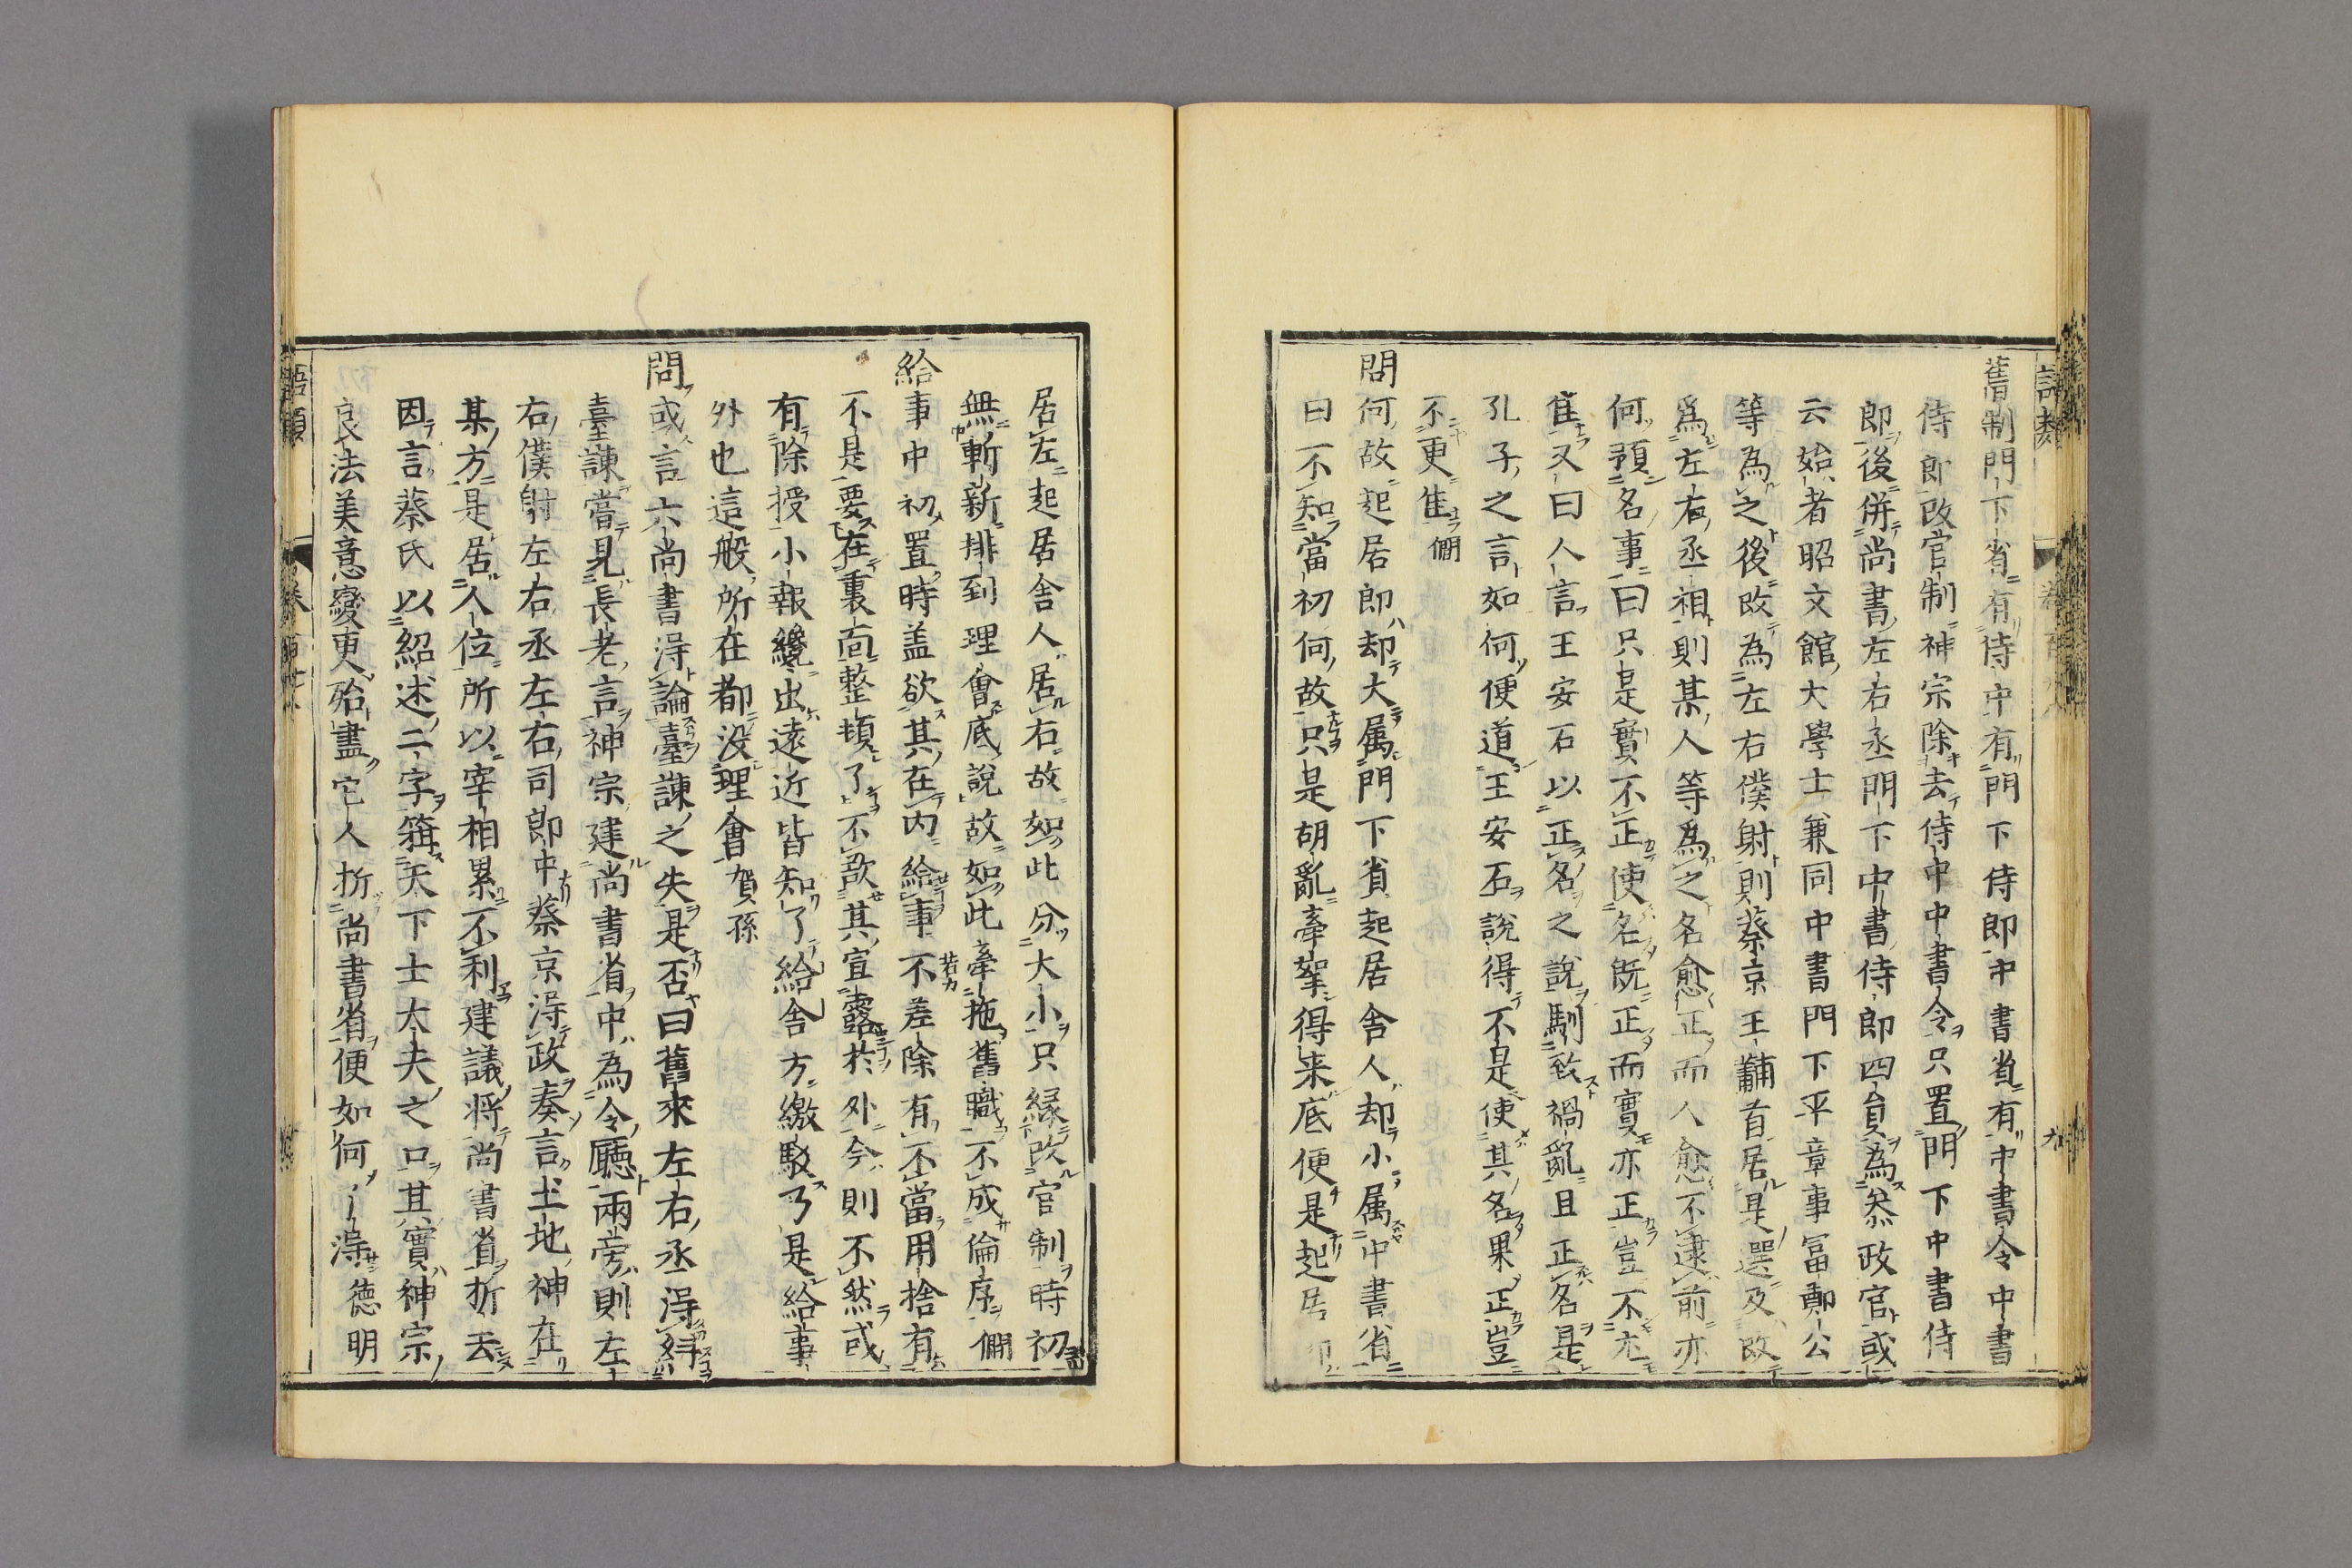 舊制門下省有侍中有門下侍郎中書省有中書令中書
侍郎改官制神宗除去侍中中書令只置門下中書侍
郎後併尚書左右丞門下中書侍郎四員為叅政官或
云始者昭文館大學士兼同中書門下平章事冨鄭公
等為之後改為左右僕射則蔡京王黼首居是選及改
爲左右丞相則某人等爲之名愈正而人愈不逮前亦
何預名事曰只是實不正使名既正而實亦正豈不尤
隹又曰人言王安石以正名之說馴致禍亂且正名是
孔子之言如何便道王安石說得不是使其名果正豈
不更隹僩
問何故起居郎却大属門下省起居舎人却小属中書省
曰不知當初何故只是胡亂牽拏得来底便是起居
居左起居舎人居右故如此分大小只縁改官制時初
無斬新排到理會底說故如此牽拖舊職不成倫序僩
給事中初置時盖欲其在內給事不差除有不當用捨有
不是要在裏靣整頓了不欲其宣露於外今則不然或
有除授小報纔出遠近皆知了給舎方繳駁乃是給事
外也這般所在都没理會賀孫
問或言六尚書淂論臺諌之失是否曰舊來左右丞淂糾
臺諌嘗見長老言神宗建尚書省中為令廳兩旁則左
右僕射左右丞左右司郎中蔡京淂政奏言土地神在
某方是居人位所以宰相累不利建議将尚書省折去
因言蔡氏以紹述二字箝天下士大夫之口其實神宗
良法美意變更殆盡它人折尚書省便如何了淂德明
語類
卷百